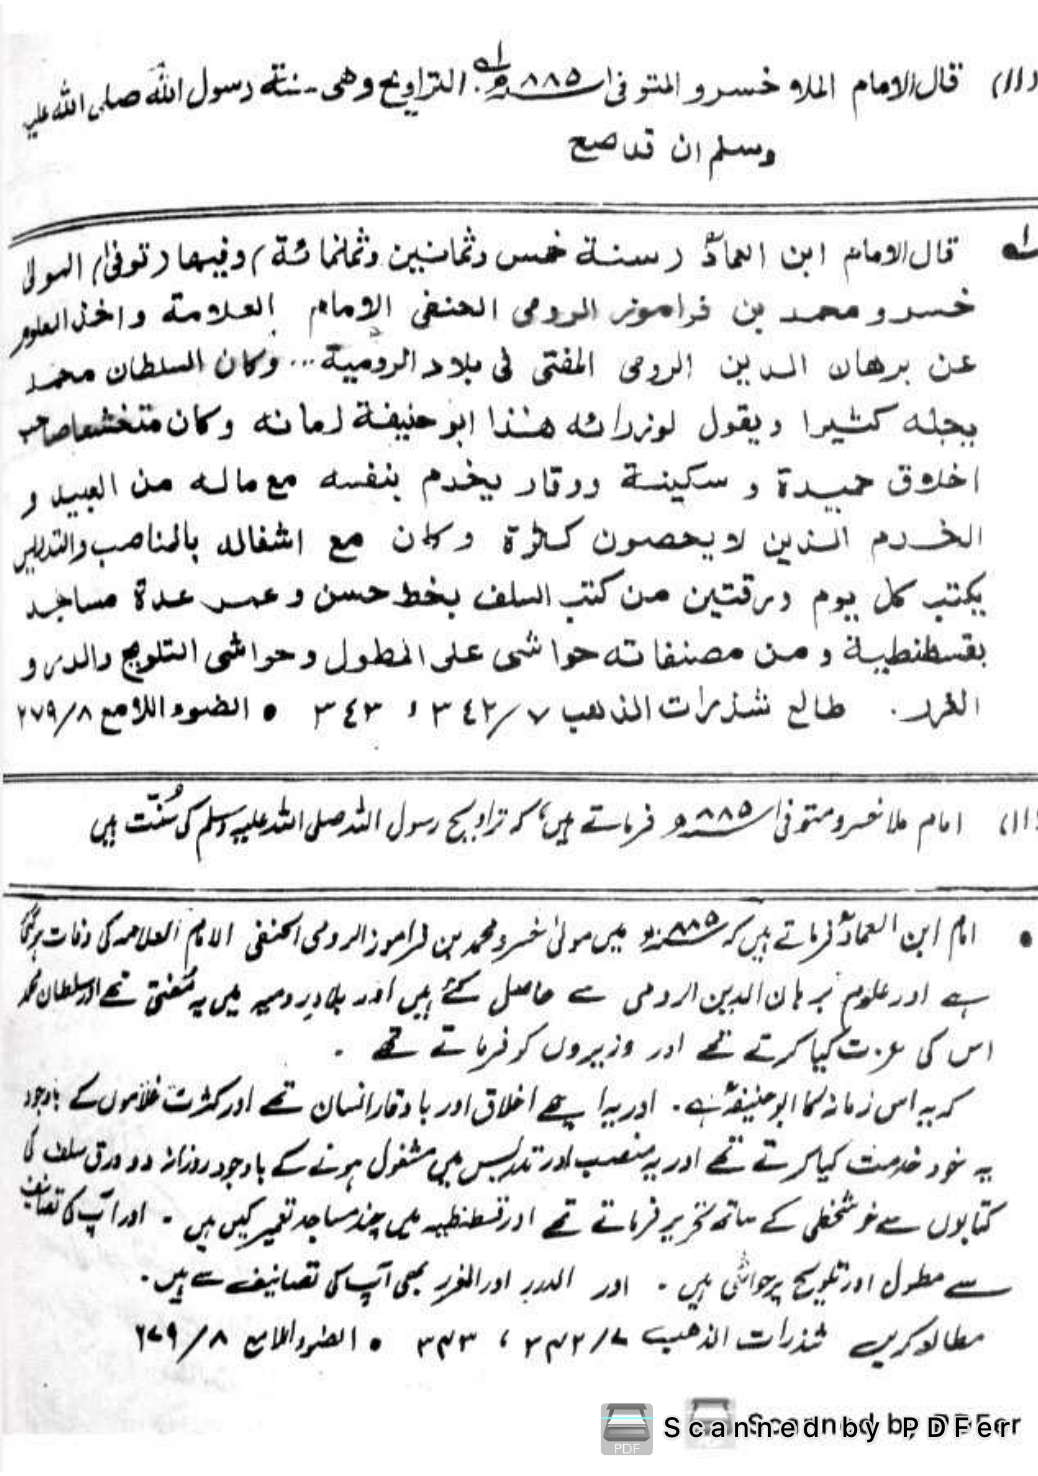 (۱۱) قال الامام الملا خسرو المتوفی ۸۸۵ھ التراویح وھی سنة رسول اللہ صلی اللہ علیہ
وسلم ان قد صح
قال الامام ابن العمادؒ (سنة خمس وثمانین وثمانمائة) وفیھا (توفی) المولی
خسرو محمد بن فراموز الرومی الحنفی الامام العلامة واخذ العلوم
عن برھان الدین الرومی المفتی فی بلاد الرومیة... وکان السلطان محمد
یجله کثیرا ویقول لوزرائه ھذا ابو حنیفة زمانه وکان متخشعا صاحب
اخلاق حمیدة و سکینة ووقار یخدم بنفسه مع ماله من العبید و
الخدم الذین لا یحصون کثرة وکان مع اشغاله بالمناصب والتدریس
یکتب کل یوم ورقتین من کتب السلف بخط حسن وعمر عدة مساجد
بقسطنطیة و من مصنفاته حواشی علی المطول وحواشی التلویح والدرر و
الغرر. طالع شذرات الذھب ۷/۳٤۲، ۳٤۳ • الضوء اللامع ۸/۲۷۹
(۱۱) امام ملا خسرو متوفی ۸۸۵ھ فرماتے ہیں کہ تراویح رسول اللہ صلی اللہ علیہ وسلم کی سُنّت ہیں
• امام ابن العمادؒ فرماتے ہیں کہ ۸۸۵ھ میں مولیٰ خسرو محمد بن فراموز الرومی الحنفی الامام العلامہ کی وفات ہوگئی
ہے اور علوم برہان الدین الرومی سے حاصل کئے ہیں اور بلادِ رومیہ میں یہ مُفتی تھے اور سلطان محمد
اس کی عزت کیا کرتے تھے اور وزیروں کو فرماتے تھے ۔
کہ یہ اس زمانہ کا ابوحنیفہؒ ہے۔ اور یہ اچھے اخلاق اور باوقار انسان تھے اور کثرت غلاموں کے باوجود
یہ خود خدمت کیا کرتے تھے اور یہ منصب اور تدریس میں مشغول ہونے کے باوجود روزانہ دو ورق سلف کی
کتابوں سے خوشخطی کے ساتھ تحریر فرماتے تھے اور قسطنطیہ میں چند مساجد تعمیر کیں ہیں ۔ اور آپ کی تصانیف
سے مطول اور تلویح پر حواشی ہیں ۔ اور الدرر اور الغرر بھی آپ کی تصانیف سے ہیں۔
مطالعہ کریں شذرات الذھب ۷/۳۴۲، ۳۴۳ • الضوء اللامع ۸/۲۷۹
Scanned by PDFer